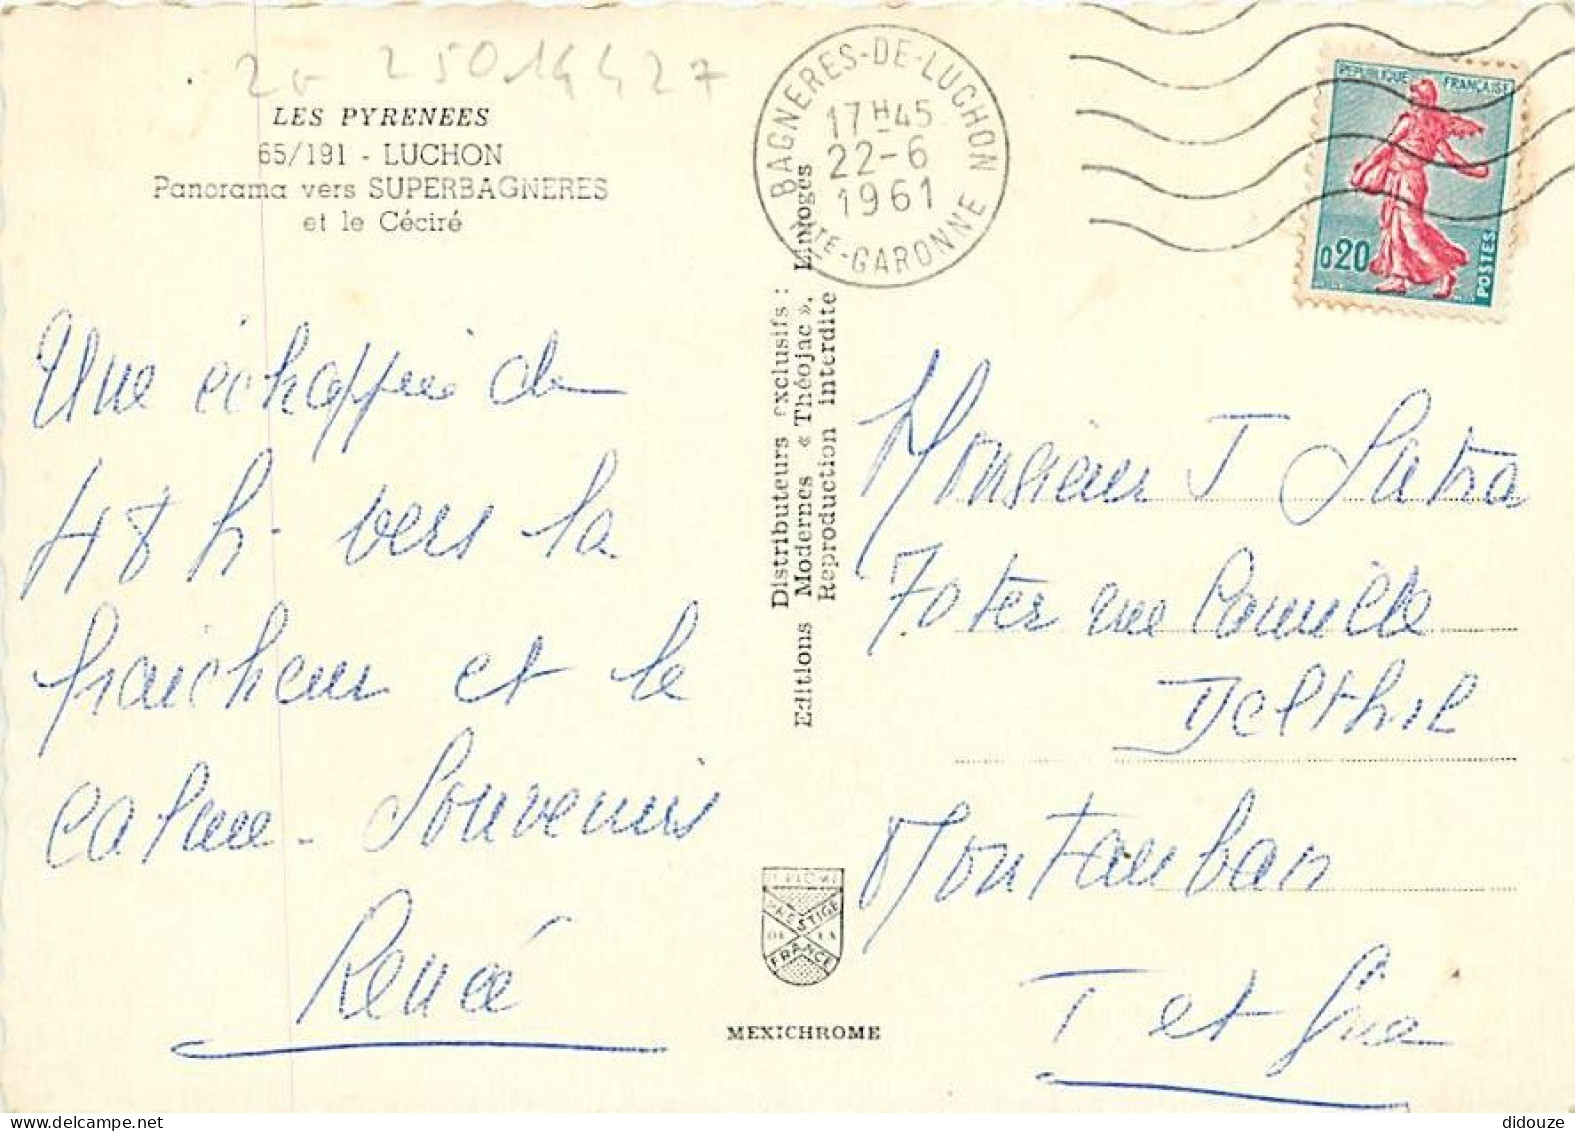 20- 25014427
LES PYRENEES
65/191 - LUCHON
Panorama vers SUPERBAGNERES
et le Céciré
Une échappée de
48 h. vers la
fraicheur et le
calme - Souvenirs
Renée
Distributeurs exclusifs :
Editions Modernes « Théojac », Limoges
Reproduction interdite
DIPLOME
PRESTIGE
DE LA
FRANCE
MEXICHROME
BAGNERES-DE-LUCHON
17H45
22-6
1961
HTE-GARONNE
REPUBLIQUE FRANÇAISE
0,20
POSTES
Monsieur J
7 rue Camille
Delthil
Montauban
T et Gne
didouze